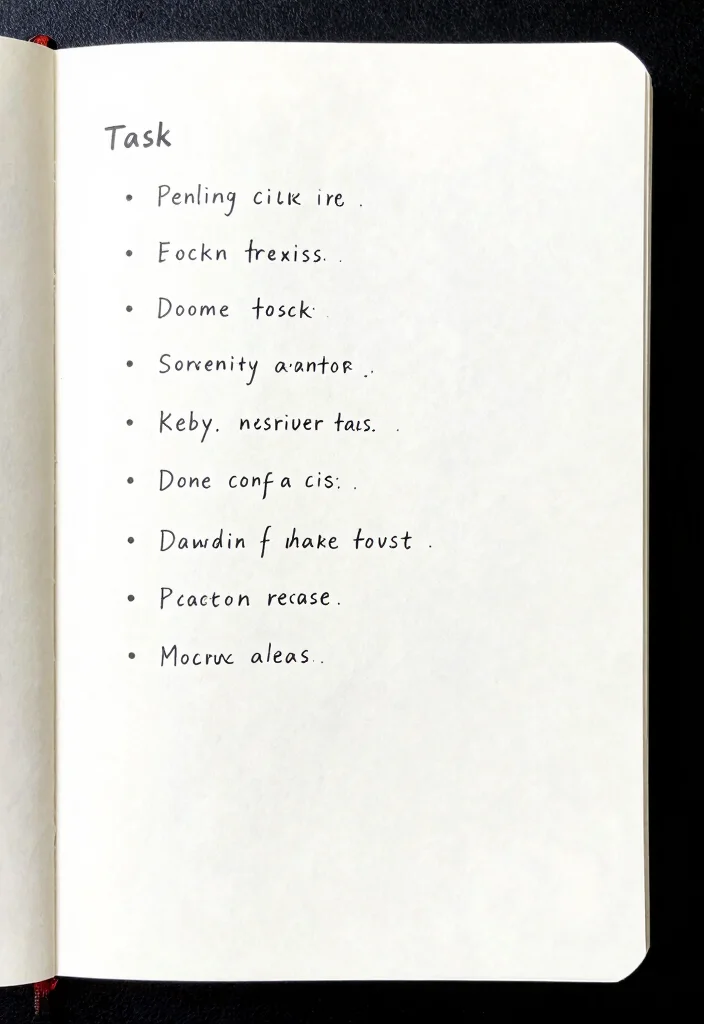 Task
Penling cilk ire .
Eockn trexiss. .
Doome tosck
Sorvenity a·antor ..
Keby. nesriver tais. .
Done conf a cis: .
f hake tovst .
Pcacton recase .
aleas . .